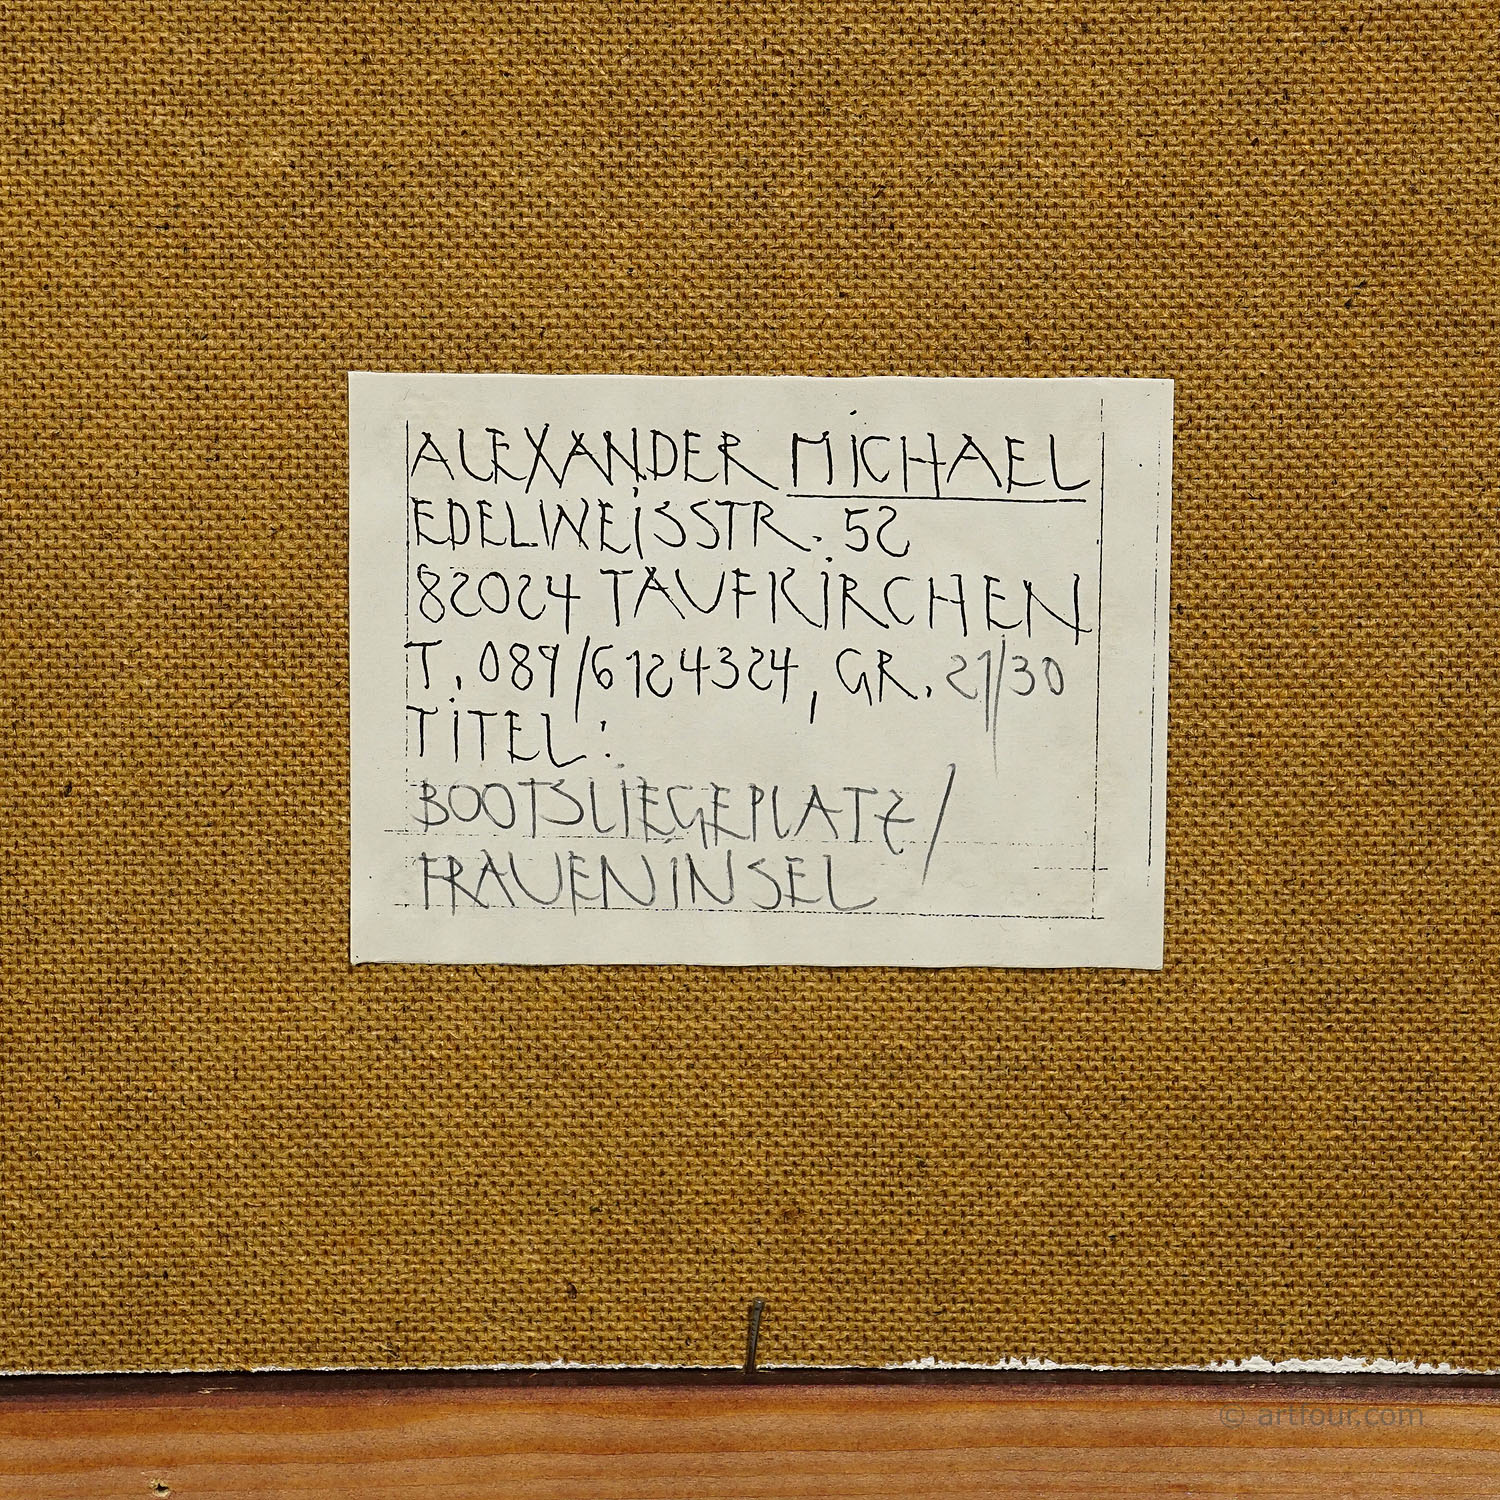 ALEXANDER MICHAEL
EDELWEISSSTR. 52
82024 TAUFKIRCHEN
T. 089/6124324, GR. 21/30
TITEL:
BOOTSLIEGEPLATZ/
FRAUENINSEL
© artfour.com